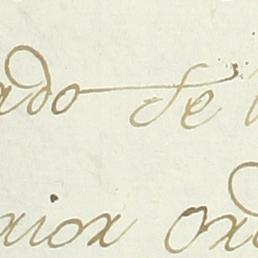 ado de
rior ord